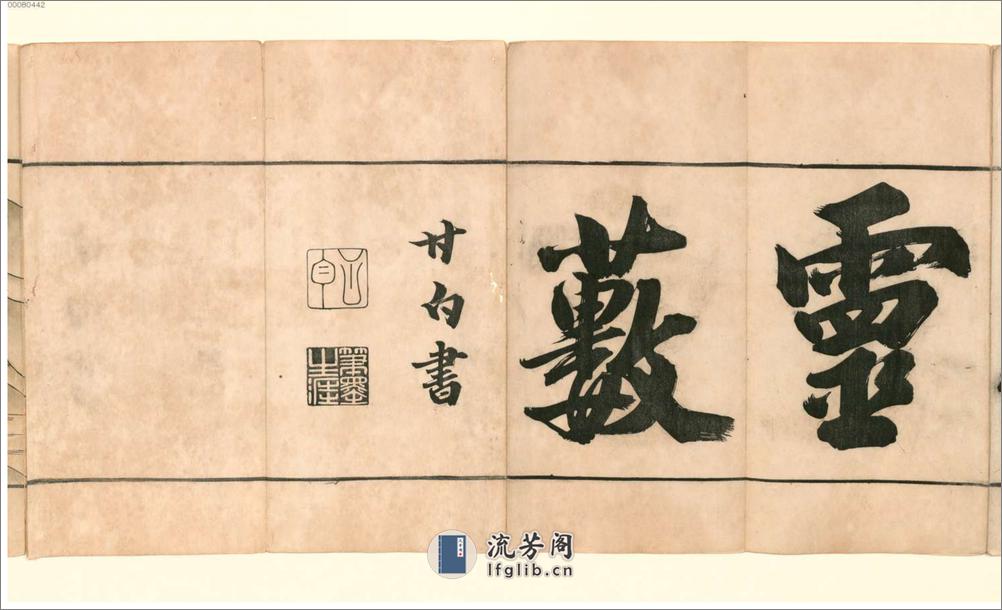 00080442
靈藪
甘白書
筆墨生涯
流芳阁
lfglib.cn